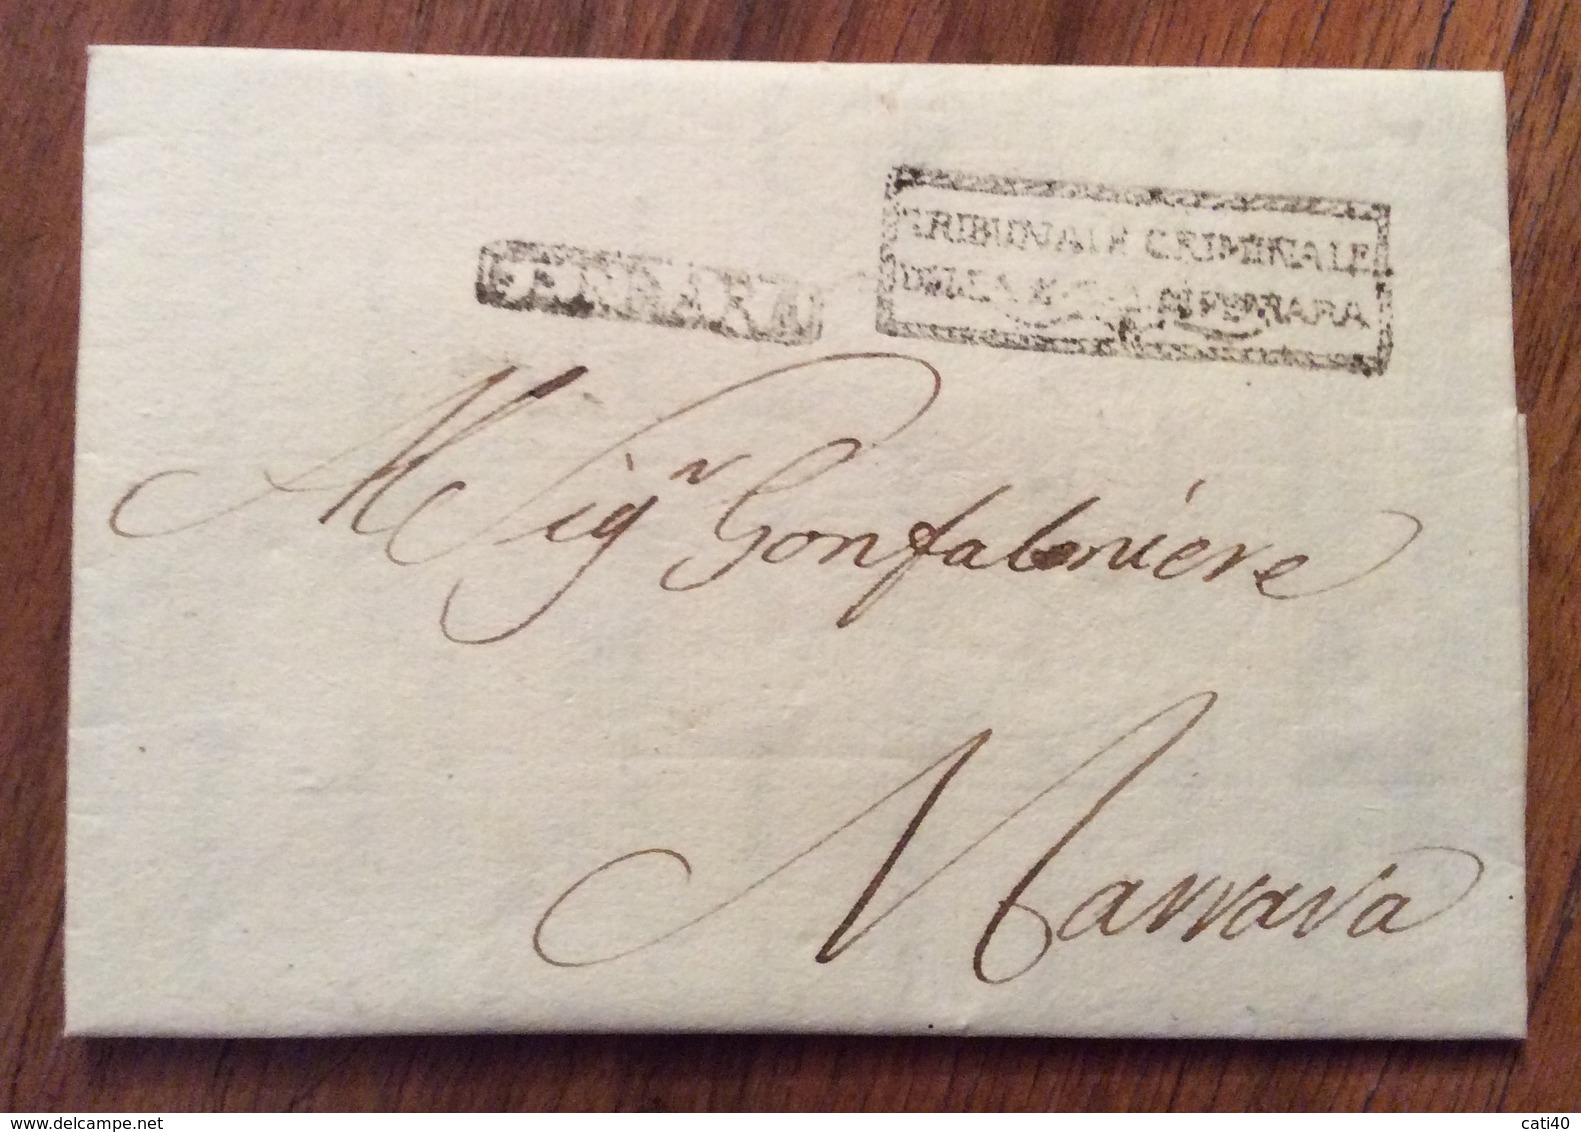 TRIBUNALE CRIMINALE
DELLA DI FERRARA
Al Sigr Gonfaloniere
Marrara
delcampe.net
cati40